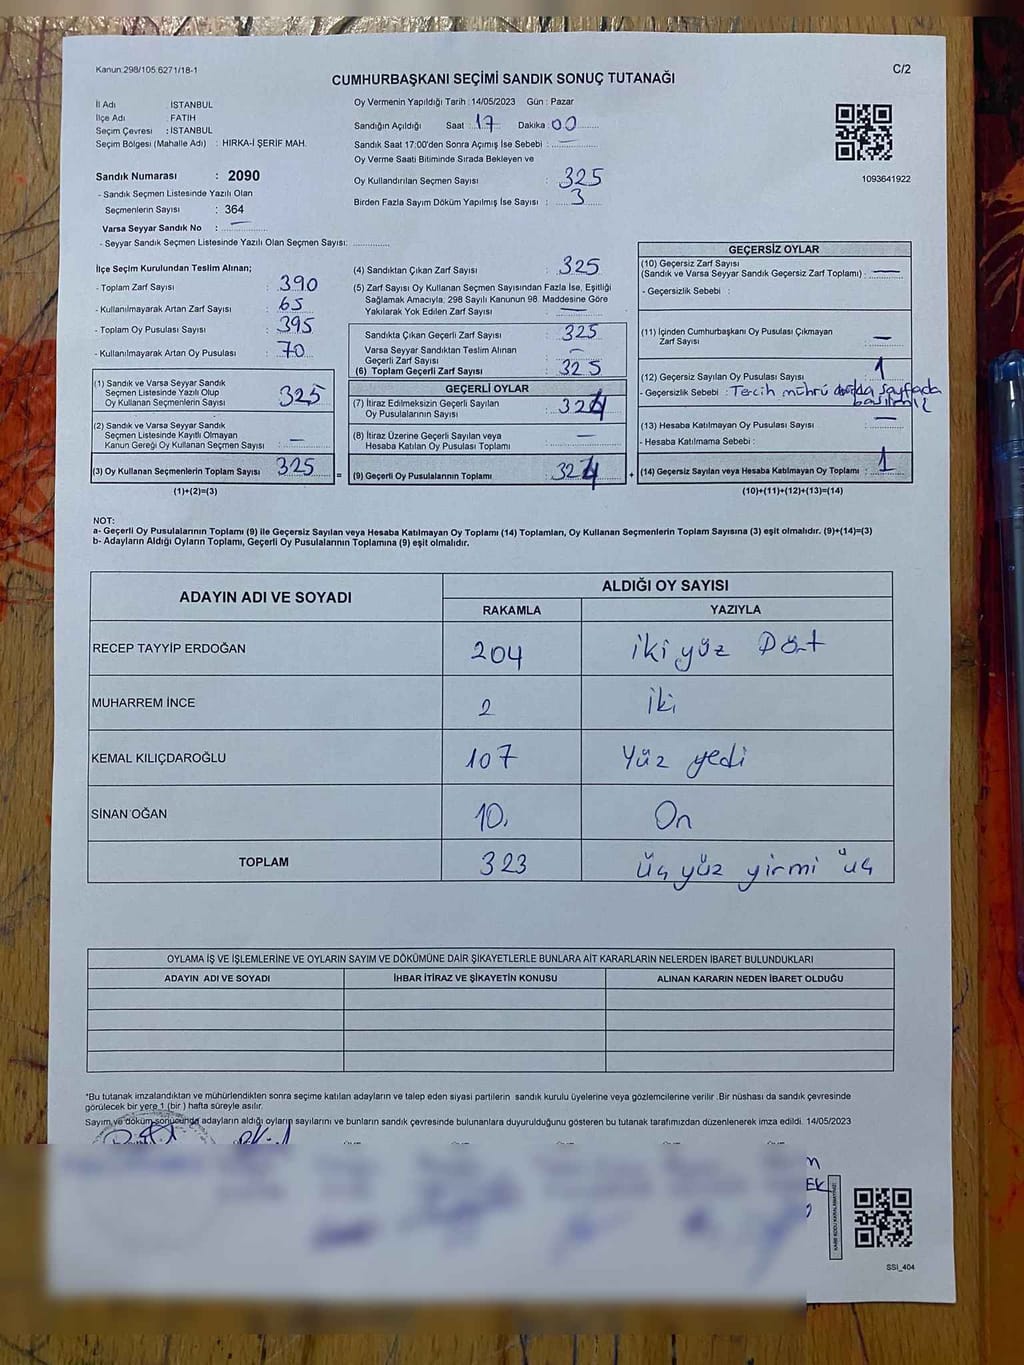 Kanun:298/105.6271/18-1
C/2
CUMHURBAŞKANI SEÇİMİ SANDIK SONUÇ TUTANAĞI
İl Adı : İSTANBUL
İlçe Adı : FATİH
Seçim Çevresi : İSTANBUL
Seçim Bölgesi (Mahalle Adı) : HIRKA-İ ŞERİF MAH.
Sandık Numarası : 2090
- Sandık Seçmen Listesinde Yazılı Olan
Seçmenlerin Sayısı : 364
Varsa Seyyar Sandık No :
- Seyyar Sandık Seçmen Listesinde Yazılı Olan Seçmen Sayısı:
Oy Vermenin Yapıldığı Tarih : 14/05/2023 Gün : Pazar
Sandığın Açıldığı Saat : 17 Dakika : 00
Sandık Saat 17:00'den Sonra Açımış İse Sebebi :
Oy Verme Saati Bitiminde Sırada Bekleyen ve
Oy Kullandırılan Seçmen Sayısı : 325
Birden Fazla Sayım Döküm Yapılmış İse Sayısı : 3
1093641922
İlçe Seçim Kurulundan Teslim Alınan;
- Toplam Zarf Sayısı : 390
- Kullanılmayarak Artan Zarf Sayısı : 65
- Toplam Oy Pusulası Sayısı : 395
- Kullanılmayarak Artan Oy Pusulası : 70
(1) Sandık ve Varsa Seyyar Sandık
Seçmen Listesinde Yazılı Olup
Oy Kullanan Seçmenlerin Sayısı : 325
(2) Sandık ve Varsa Seyyar Sandık
Seçmen Listesinde Kayıtlı Olmayan
Kanun Gereği Oy Kullanan Seçmen Sayısı : –
(3) Oy Kullanan Seçmenlerin Toplam Sayısı : 325
(1)+(2)=(3)
(4) Sandıktan Çıkan Zarf Sayısı : 325
(5) Zarf Sayısı Oy Kullanan Seçmen Sayısından Fazla İse, Eşitliği
Sağlamak Amacıyla, 298 Sayılı Kanunun 98. Maddesine Göre
Yakılarak Yok Edilen Zarf Sayısı : –
Sandıkta Çıkan Geçerli Zarf Sayısı : 325
Varsa Seyyar Sandıktan Teslim Alınan
Geçerli Zarf Sayısı : –
(6) Toplam Geçerli Zarf Sayısı : 325
GEÇERLİ OYLAR
(7) İtiraz Edilmeksizin Geçerli Sayılan
Oy Pusulalarının Sayısı : 324
(8) İtiraz Üzerine Geçerli Sayılan veya
Hesaba Katılan Oy Pusulası Toplamı : –
= (9) Geçerli Oy Pusulalarının Toplamı : 324 +
GEÇERSİZ OYLAR
(10) Geçersiz Zarf Sayısı
(Sandık ve Varsa Seyyar Sandık Geçersiz Zarf Toplamı) : –
- Geçersizlik Sebebi :
(11) İçinden Cumhurbaşkanı Oy Pusulası Çıkmayan
Zarf Sayısı : –
(12) Geçersiz Sayılan Oy Pusulası Sayısı : 1
- Geçersizlik Sebebi : Tercih mührü sayfada
(13) Hesaba Katılmayan Oy Pusulası Sayısı : –
- Hesaba Katılmama Sebebi :
(14) Geçersiz Sayılan veya Hesaba Katılmayan Oy Toplamı : 1
(10)+(11)+(12)+(13)=(14)
NOT:
a- Geçerli Oy Pusulalarının Toplamı (9) ile Geçersiz Sayılan veya Hesaba Katılmayan Oy Toplamı (14) Toplamları, Oy Kullanan Seçmenlerin Toplam Sayısına (3) eşit olmalıdır. (9)+(14)=(3)
b- Adayların Aldığı Oyların Toplamı, Geçerli Oy Pusulalarının Toplamına (9) eşit olmalıdır.
ADAYIN ADI VE SOYADI ALDIĞI OY SAYISI
RAKAMLA YAZIYLA
RECEP TAYYİP ERDOĞAN 204 iki yüz Dört
MUHARREM İNCE 2 İki
KEMAL KILIÇDAROĞLU 107 Yüz yedi
SİNAN OĞAN 10. On
TOPLAM 323 üç yüz yirmi üç
OYLAMA İŞ VE İŞLEMLERİNE VE OYLARIN SAYIM VE DÖKÜMÜNE DAİR ŞİKAYETLERLE BUNLARA AİT KARARLARIN NELERDEN İBARET BULUNDUKLARI
ADAYIN ADI VE SOYADI İHBAR İTİRAZ VE ŞİKAYETİN KONUSU ALINAN KARARIN NEDEN İBARET OLDUĞU
*Bu tutanak imzalandıktan ve mühürlendikten sonra seçime katılan adayların ve talep eden siyasi partilerin sandık kurulu üyelerine veya gözlemcilerine verilir .Bir nüshası da sandık çevresinde
görülecek bir yere 1 (bir ) hafta süreyle asılır.
Sayım ve döküm sonucunda adayların aldığı oyların sayılarını ve bunların sandık çevresinde bulunanlara duyurulduğunu gösteren bu tutanak tarafımızdan düzenlenerek imza edildi. 14/05/2023
SSİ_404